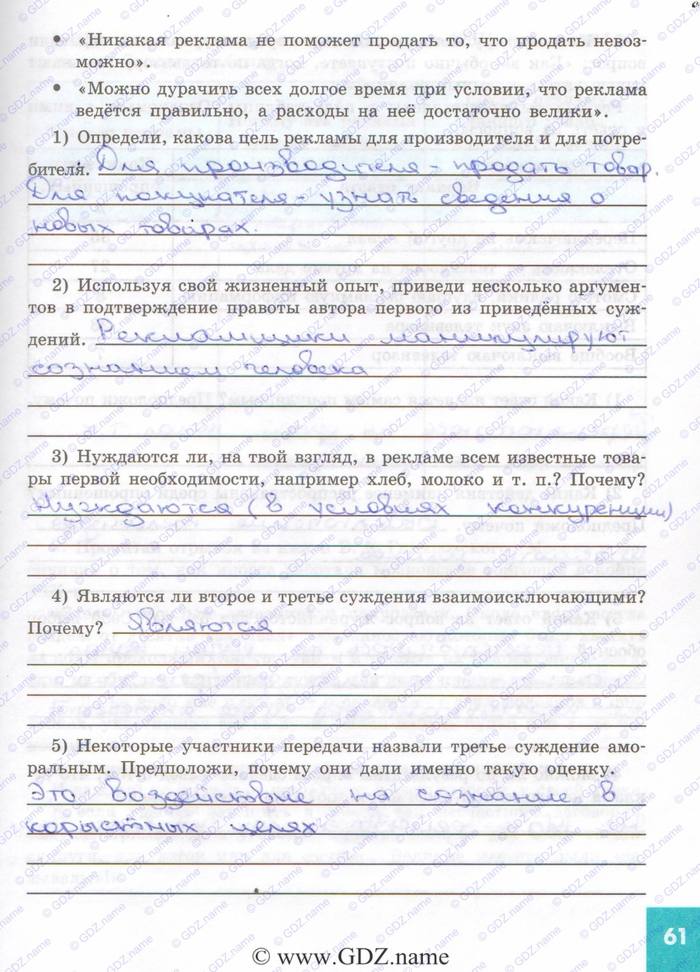 • «Никакая реклама не поможет продать то, что продать невоз-
можно».
• «Можно дурачить всех долгое время при условии, что реклама
ведётся правильно, а расходы на неё достаточно велики».
1) Определи, какова цель рекламы для производителя и для потре-
бителя. Для производителя - продать товар.
Для покупателя - узнать сведения о
новых товарах.
2) Используя свой жизненный опыт, приведи несколько аргумен-
тов в подтверждение правоты автора первого из приведённых суж-
дений. Рекламщики манипулируют
сознанием человека
3) Нуждаются ли, на твой взгляд, в рекламе всем известные това-
ры первой необходимости, например хлеб, молоко и т. п.? Почему?
Нуждаются (в условиях конкуренции)
4) Являются ли второе и третье суждения взаимоисключающими?
Почему? Являются
5) Некоторые участники передачи назвали третье суждение амо-
ральным. Предположи, почему они дали именно такую оценку.
Это воздействие на сознание в
корыстных целях
61
© www.GDZ.name